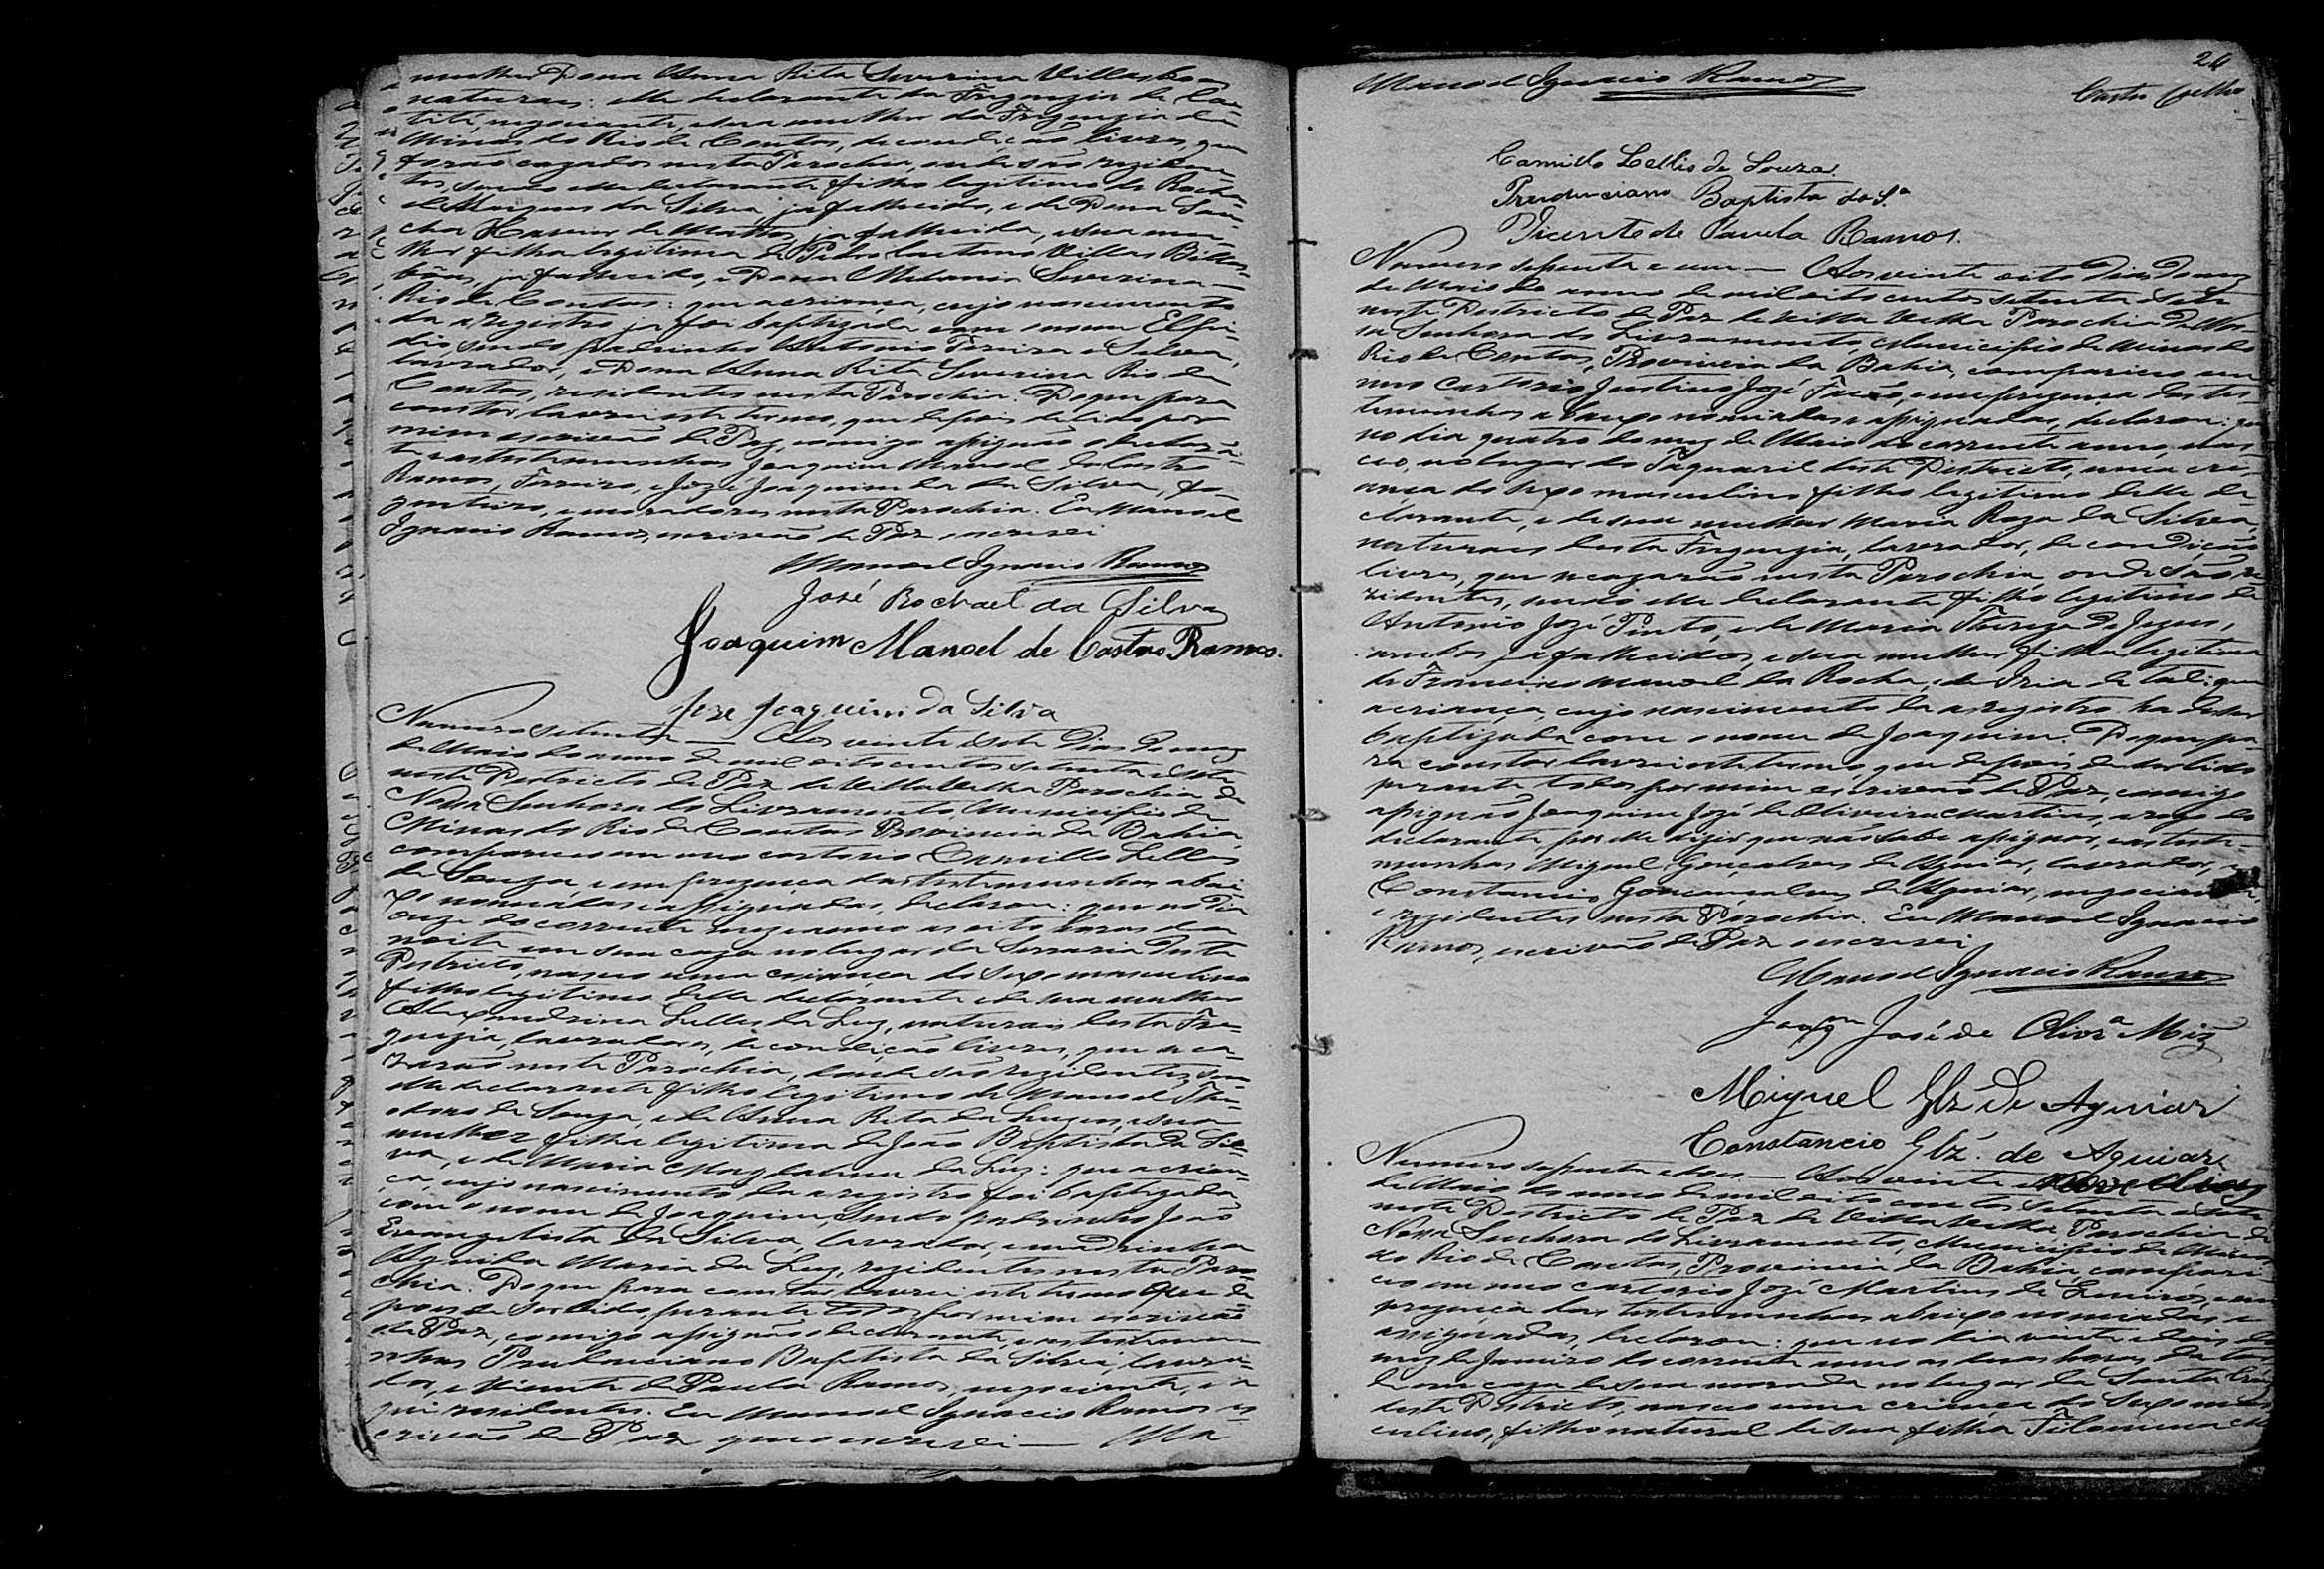 mulher Dona Anna Rita Severina Villasboas
naturaes: elle declarante da Freguezia de Cae-
tité, negociante, e sua mulher da Freguezia de
Minas do Rio de Contas, de condição livres, que
forão cazados nesta Parochia, onde são reziden-
tes, sendo elle declarante filho legitimo de Rocha-
el Marques da Silva, ja fallecido, e de Dona
de Mattos, ja fallecida, e sua mu-
lher filha legitima de Pedro Caetano Villas
bôas, ja fallecido, e Dona Severina
Rio de Contas: que a criança, cujo nascimento
da a registro ja foi baptizada com o nome
dio, sendo padrinhos Antonio Pereira e Silva,
lavrador, e Dona Anna Rita Severina Rio de
Contas, rezidentes nesta Parochia. Do que para
constar lavrei este termo, que depois de lido por
mim escrivão de Paz, comigo assignão o declaran-
te e as testemunhas Joaquim Manoel de Castro
Ramos, Ferreiro, e José Joaquim da Silva, fo-
gueteiro, e moradores nesta Parochia. Eu Manoel
Ignacio Ramos, escrivão de Paz escrevi
Manoel Ignacio Ramos
José Rochael da Silva
Joaquim Manoel de Castro Ramos.
Joze Joaquim da Silva
Numero setenta — Aos vinte e sete dias do mez
de Maio do anno de mil oito centos setenta e sete
neste Destricto de Paz de Villa Velha Parochia de
Nossa Senhora do Livramento, Municipio de
Minas do Rio de Contas Provincia da Bahia,
compareceu em meo cartorio Camillo Lelles
de Souza, e em prezença das testemunhas abai-
xo nomeadas e assignadas, declarou: que no dia
onze do corrente mez e anno as oito horas da
noite em sua caza no lugar da Serraria deste
Destricto, nasceu uma criança do sexo masculino
filho legitimo delle declarante e de sua mulher
Alexandrina Lelles da Luz, naturaes desta Fre-
guezia, lavradores, de condição livres, que se ca-
zarão nesta Parochia, donde são rezidentes, sendo
elle declarante filho legitimo de Manoel The-
odoro de Souza, e de Anna Rita da, e sua
mulher filha legitima de João Baptista da Sil-
va, e de Maria Magdalena da Luz: que a crian-
ça, cujo nascimento da a registro foi baptizada
com o nome de Joaquim, sendo padrinho João
Evangelista da Silva, lavrador, e madrinha
Maria da Luz, rezidentes nesta Paro-
chia. Do que para constar lavrei este termo que de-
pois de ser lido perante todos por mim escrivão
de Paz, comigo assignão o declarante, e as testemu-
nhas Prudenciano Baptista da Silva, lavra-
dor, e Vicente de Paula Ramos, negociante, e a-
qui rezidentes. Eu Manoel Ignacio Ramos es-
crivão de Paz que escrevi — Ma
24
Castro Coelho
Manoel Ignacio Ramos
Camillo Lellis de Souza.
Prudenciano Baptista da S.ª
Vicente de Paula Ramos.
Numero setenta e um — Aos vinte oito dias do mez
de Maio do anno de mil oito centos setenta e sete
neste Destricto de Paz de Villa Velha Parochia de Nos-
sa Senhora do Livramento, Municipio de Minas do
Rio de Contas, Provincia da Bahia, compareceu em
meo cartorio Justino José, e em prezença das tes-
temunhas abaixo nomeadas e assignadas, declarou: que
no dia quatro do mez de Maio do corrente anno, nas-
ceo, no lugar do Taquaril deste Destricto, uma cri-
ança do sexo masculino filho legitimo delle de-
clarante, e de sua mulher Maria Roza da Silva,
naturaes desta Freguezia, lavrador, de condição
livres, que se cazarão nesta Parochia, onde são re-
zidentes, sendo elle declarante filho legitimo de
Antonio José Pinto, e de Maria Thereza de Jezus,
ambos ja fallecidos, e sua mulher filha legitima
de Francisco Manoel da Rocha, e de Iria de tal: que
a criança, cujo nascimento da a registro ha de ser
baptizada com o nome de Joaquim. Do que pa-
ra constar lavrei este termo, que depois de ser lido
perante todos por mim escrivão de Paz, comigo
assignão Joaquim José de Oliveira Martins, a rogo do
declarante por elle dizer que não sabe assignar, e as teste-
munhas Miguel Gonçalves de Aguiar, lavrador, e
Constancio Gonçalves de Aguiar, negociante,
e rezidentes nesta Parochia. Eu Manoel Ignacio
Ramos, escrivão de Paz escrevi
Manoel Ignacio Ramos
Joaqm José de Olivrª Miz
Miguel Glz de Aguiar
Constancio Glz. de Aguiar
Numero setenta e dous — Aos vinte e nove dias
de Maio do anno de mil oito centos setenta e sete
neste Destricto de Paz de Villa Velha, Parochia de
Nossa Senhora do Livramento, Municipio de Minas
do Rio de Contas, Provincia da Bahia, compare-
ceo em meo cartorio José Martins de, e em
prezença das testemunhas abaixo nomeadas e
assignadas, declarou: que no dia vinte e dois do
mez de Janeiro do corrente anno as duas horas da tar-
de em caza de sua morada no lugar da Santa Cruz
deste Destricto, nasceu uma criança do sexo mas-
culino, filho natural de sua filha Filomena